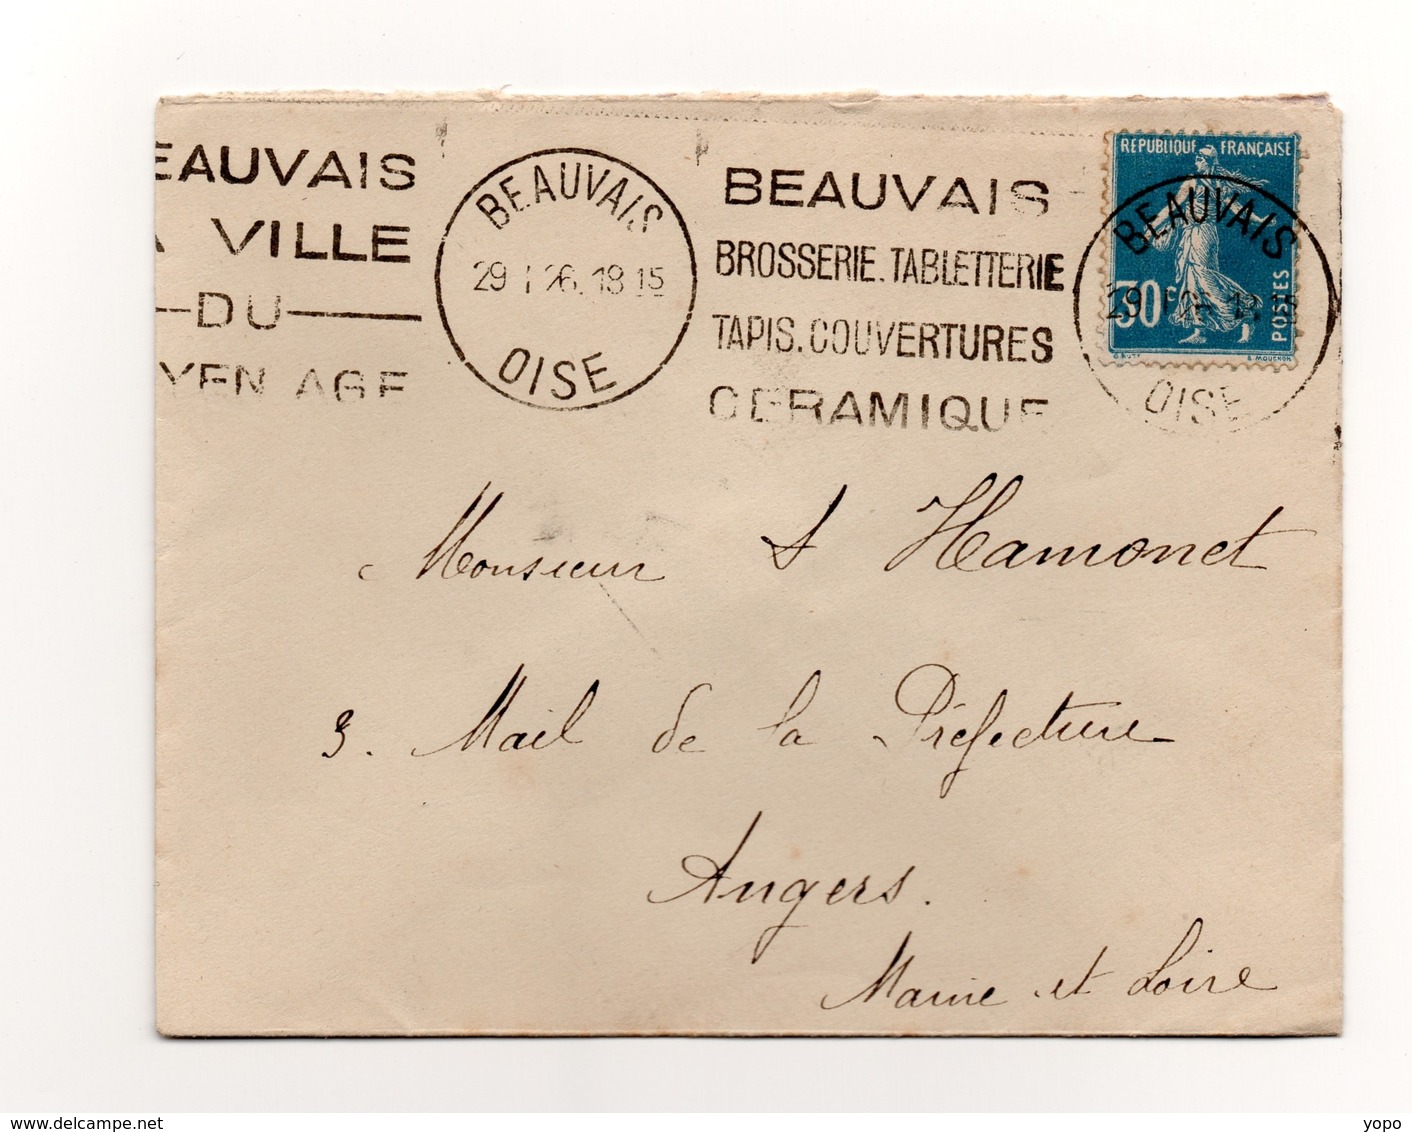 EAUVAIS
A VILLE
DU
YEN AGE
BEAUVAIS
29 1 26. 18 15
OISE
BEAUVAIS
BROSSERIE. TABLETTERIE
TAPIS. COUVERTURES
CERAMIQUE
REPUBLIQUE FRANÇAISE
30 F
POSTES
E. MOUCHON
BEAUVAIS
29 1 26 18 15
OISE
Monsieur S Hamonet
3. Mail de la Préfecture
Angers.
Maine et Loire
www.delcampe.net
yopo